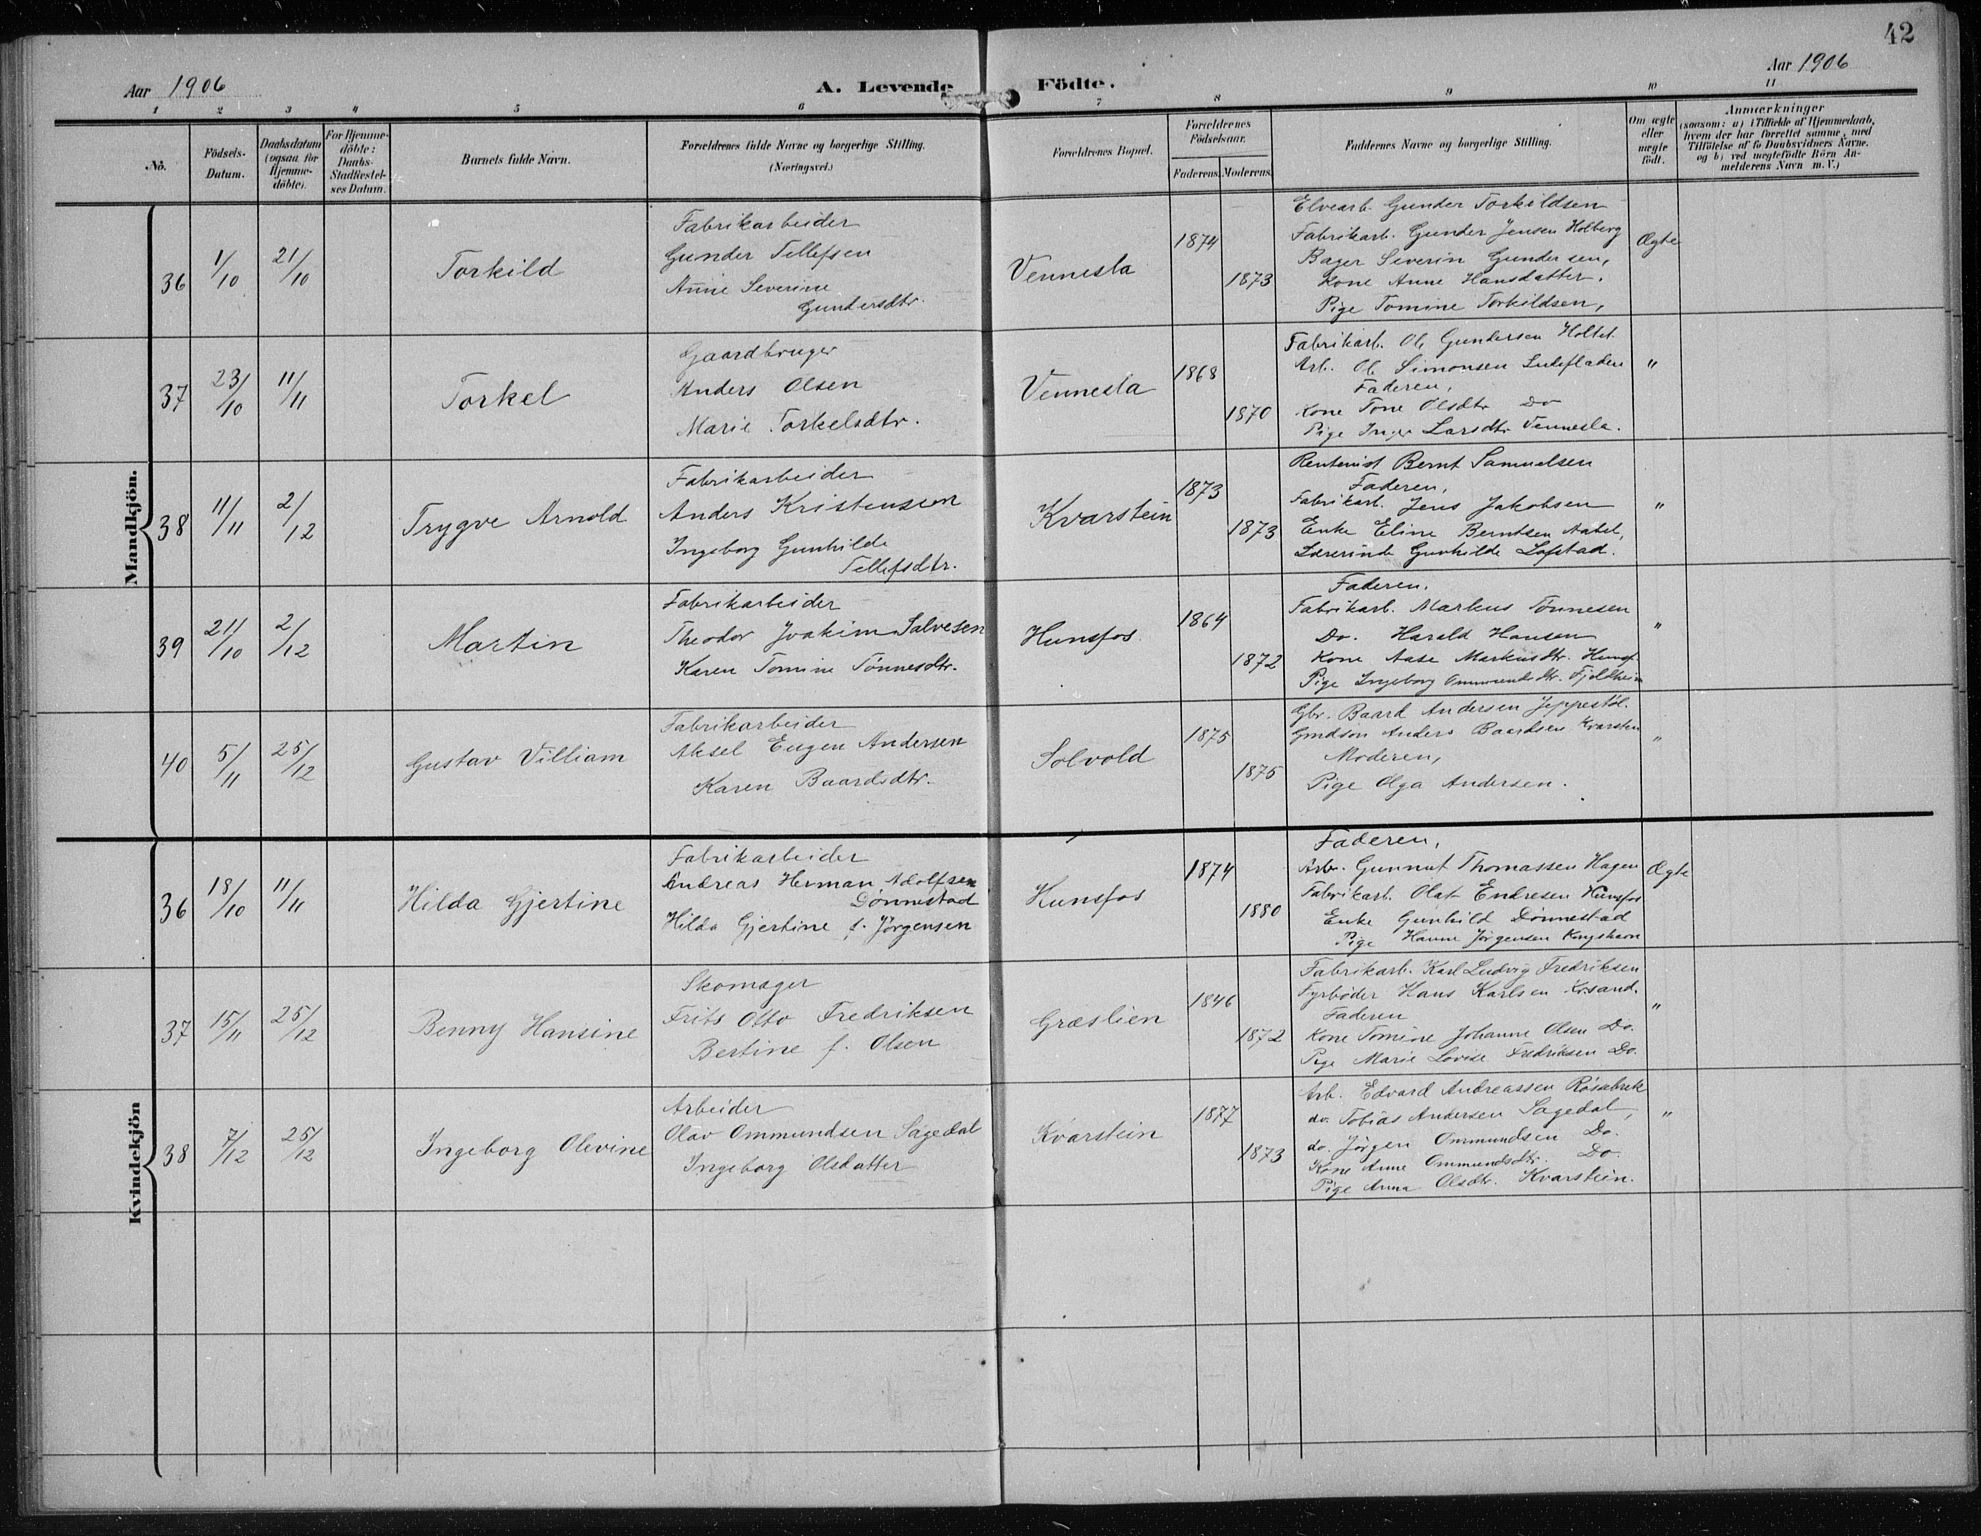 42
Aar 1906
A. Levende Födte.
Aar 1906
1 2 3 4 5 6 7 8 9 10 11
No.
Födsels-
Datum.
Daabsdatum
(ogsaa for
Hjemme-
döbte).
For Hjemme-
döbte:
Daabs-
Stadfæstel-
ses Datum.
Barnets fulde Navn.
Forældrenes fulde Navne og borgerlige Stilling.
(Næringsvei.)
Forældrenes Bopæl.
Forældrenes
Födselsaar.
Faderens. Moderens.
Faddernes Navne og borgerlige Stilling.
Om ægte
eller
uægte
födt.
Anmærkninger
(saasom: a) i Tilfælde af Hjemmedaab,
hvem der har forrettet samme, med
Tilföielse af to Daabsvidners Navne.
og b) ved uægtefödte Börn An-
melderens Navn m. V.)
Mandkjön.
36 1/10 21/10 Torkild
Fabrikarbeider
Gunder Tellefsen
Anne Severine
Gundersdtr.
Vennesla 1874 1873
Elvearb. Gunder Torkildsen
Fabrikarb. Gunder Jensen Holberg
Bager Severin Gundersen,
Kone Anne Hansdatter.
Pige Tomine Torkildsen,
Ægte
37 23/10 11/11 Torkel
Gaardbruger
Anders Olsen
Marie Torkelsdtr.
Vennesla 1868 1870
Fabrikarb. Ole Gundersen Holtet.
Arb. Ole Simonsen
Faderen,
Kone Tone Olsdtr Do
Pige Inger Larsdtr Vennesla.
"
38 11/11 2/12 Trygve Arnold
Fabrikarbeider
Anders Kristensen
Ingeborg Gunhilde
Tellefsdtr.
Kvarstein 1873 1873
Rentenist Bernt Samuelsen
Faderen,
Fabrikarb. Jens Jakobsen
Enke Eline Berntsen
Lærerinde Gunhilde Løfstad.
"
39 21/10 2/12 Martin
Fabrikarbeider
Theodor Joakim Salvesen
Karen Tomine Tønnesdtr.
Hunsfos. 1864 1872
Faderen.
Fabrikarb. Markus Tønnesen
Do. Harald Hansen
Kone Aase Markusdtr. Hunsf.
Pige Ingeborg Ommundsdtr. Fjeldheim
"
40 5/11 25/12 Gustav Villiam
Fabrikarbeider
Aksel Eugen Andersen
Karen Baardsdtr.
Solvold 1875 1875
Gbr. Baard Andersen Jeppestøl.
Gmdsøn Anders Baardsen Kvarstein
Moderen,
Pige Olga Andersen.
"
Kvindekjön
36 18/10 11/11 Hilda Gjertine
Fabrikarbeider
Andreas Herman Adolfsen
Dønnestad
Hilda Gjertine f. Jørgensen
Hunsfos 1874 1880
Faderen,
Arb. Gunnut Thomassen Hagen
Fabrikarb. Olat Endresen Hunsfos
Enke Gunhild Dønnestad
Pige Hanne Jørgensen Kongshavn
Ægte
37 15/11 25/12 Benny Hansine
Skomager
Frits Otto Fredriksen
Bertine f. Olsen
Græslien 1846 1872
Fabrikarb. Karl Ludvig Fredriksen
Fyrbøder Hans Karlsen Krsand.
Faderen
Kone Tomine Johanne Olsen Do.
Pige Marie Lovise Fredriksen Do.
"
38 7/12 25/12 Ingeborg Olevine
Arbeider
Olav Ommundsen Sagedal
Ingeborg Olsdatter
Kvarstein 1877 1873
Arb. Edvard Andreassen
do. Tobias Andersen Sagedal,
do. Jørgen Ommundsen Do.
Kone Anne Ommundsdtr. Do.
Pige Anna Olsdtr. Kvarstein.
"